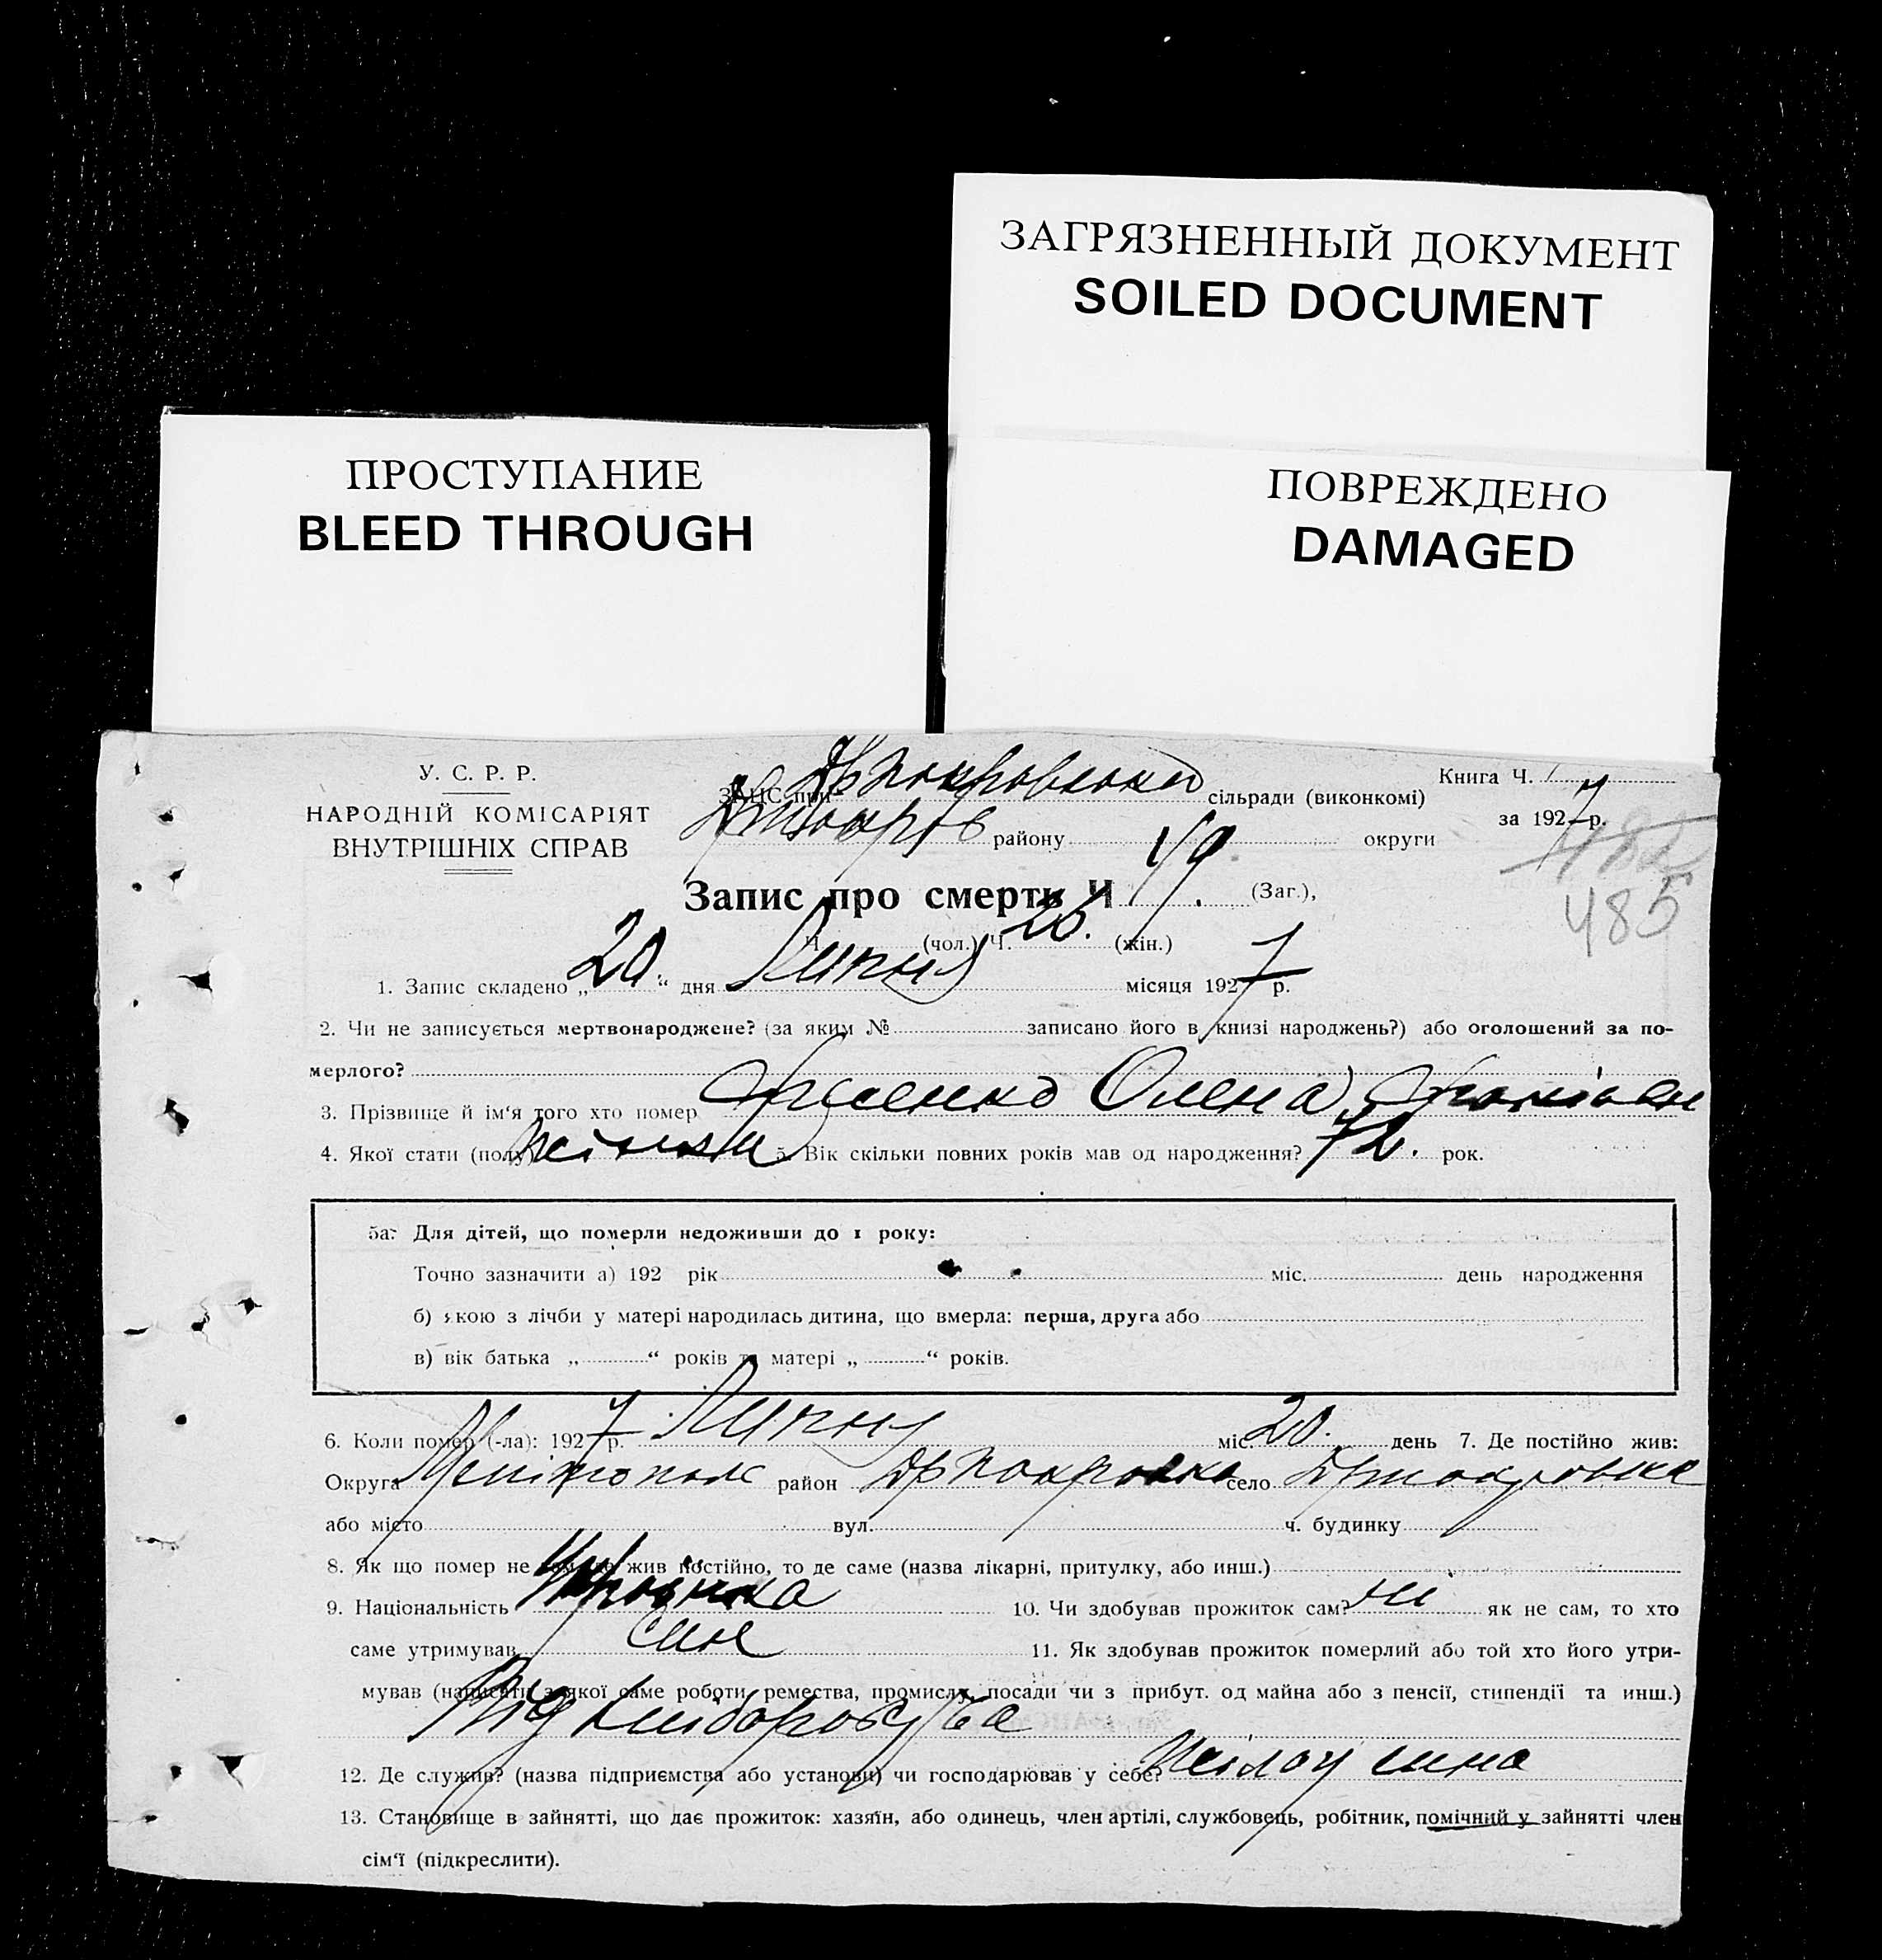 ЗАГРЯЗНЕННЫЙ ДОКУМЕНТ
SOILED DOCUMENT
ПРОСТУПАНИЕ
BLEED THROUGH
ПОВРЕЖДЕНО
DAMAGED
У. С. Р. Р.
НАРОДНІЙ КОМІСАРІЯТ
ВНУТРІШНІХ СПРАВ
ЗАНС при сільради (виконкомі)
району округи
Книга Ч.
за 1927 р.
482
485
Запис про смерть Ч 49. (Заг.),
Ч. (чол.) Ч. 26. (жін.)
1. Запис складено „20.“ дня Липня місяця 1927 р.
2. Чи не записується мертвонароджене? (за яким № записано його в книзі народжень?) або оголошений за по-
мерлого?
3. Прізвище й ім'я того хто помер Олена
4. Якої стати (полу) жіноки 5. Вік скільки повних років мав од народження? 72. рок.
5а. Для дітей, що померли недоживши до 1 року:
Точно зазначити а) 192 рік міс. день народження
б) якою з лічби у матері народилась дитина, що вмерла: перша, друга або
в) вік батька „ “ років та матері „ “ років.
6. Коли помер (-ла): 1927 р. Липня міс. 20. день 7. Де постійно жив:
Округа Мелітополь район Др Покровка село Др покровка
або місто вул. ч. будинку
8. Як що помер не там, де жив постійно, то де саме (назва лікарні, притулку, або инш.)
9. Національність Українка 10. Чи здобував прожиток сам? ні як не сам, то хто
саме утримував син 11. Як здобував прожиток померлий або той хто його утри-
мував (написати з якої саме роботи, ремества, промислу, посади чи з прибут. од майна або з пенсії, стипендії та инш.)
Від хліборобства
12. Де служив? (назва підприємства або установи) чи господарював у себе? сина
13. Становище в зайнятті, що дає прожиток: хазяїн, або одинець, член артілі, службовець, робітник, помічний у зайнятті член
сім'ї (підкреслити).